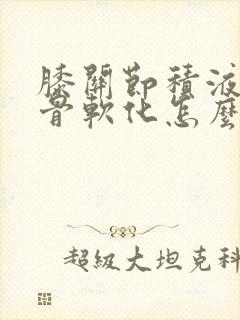 膝關節積液
骨軟化怎麼
超級大坦克科